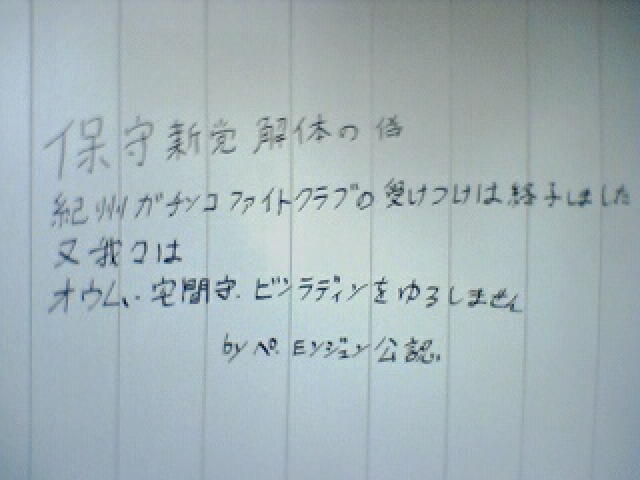 保守新党 解体の 為
紀州ガチンコファイトクラブの受けつけは終了しました
又我々は
オウム、宅間守、ビンラディンをゆるしません
by ペ.ヨンジュン公認。